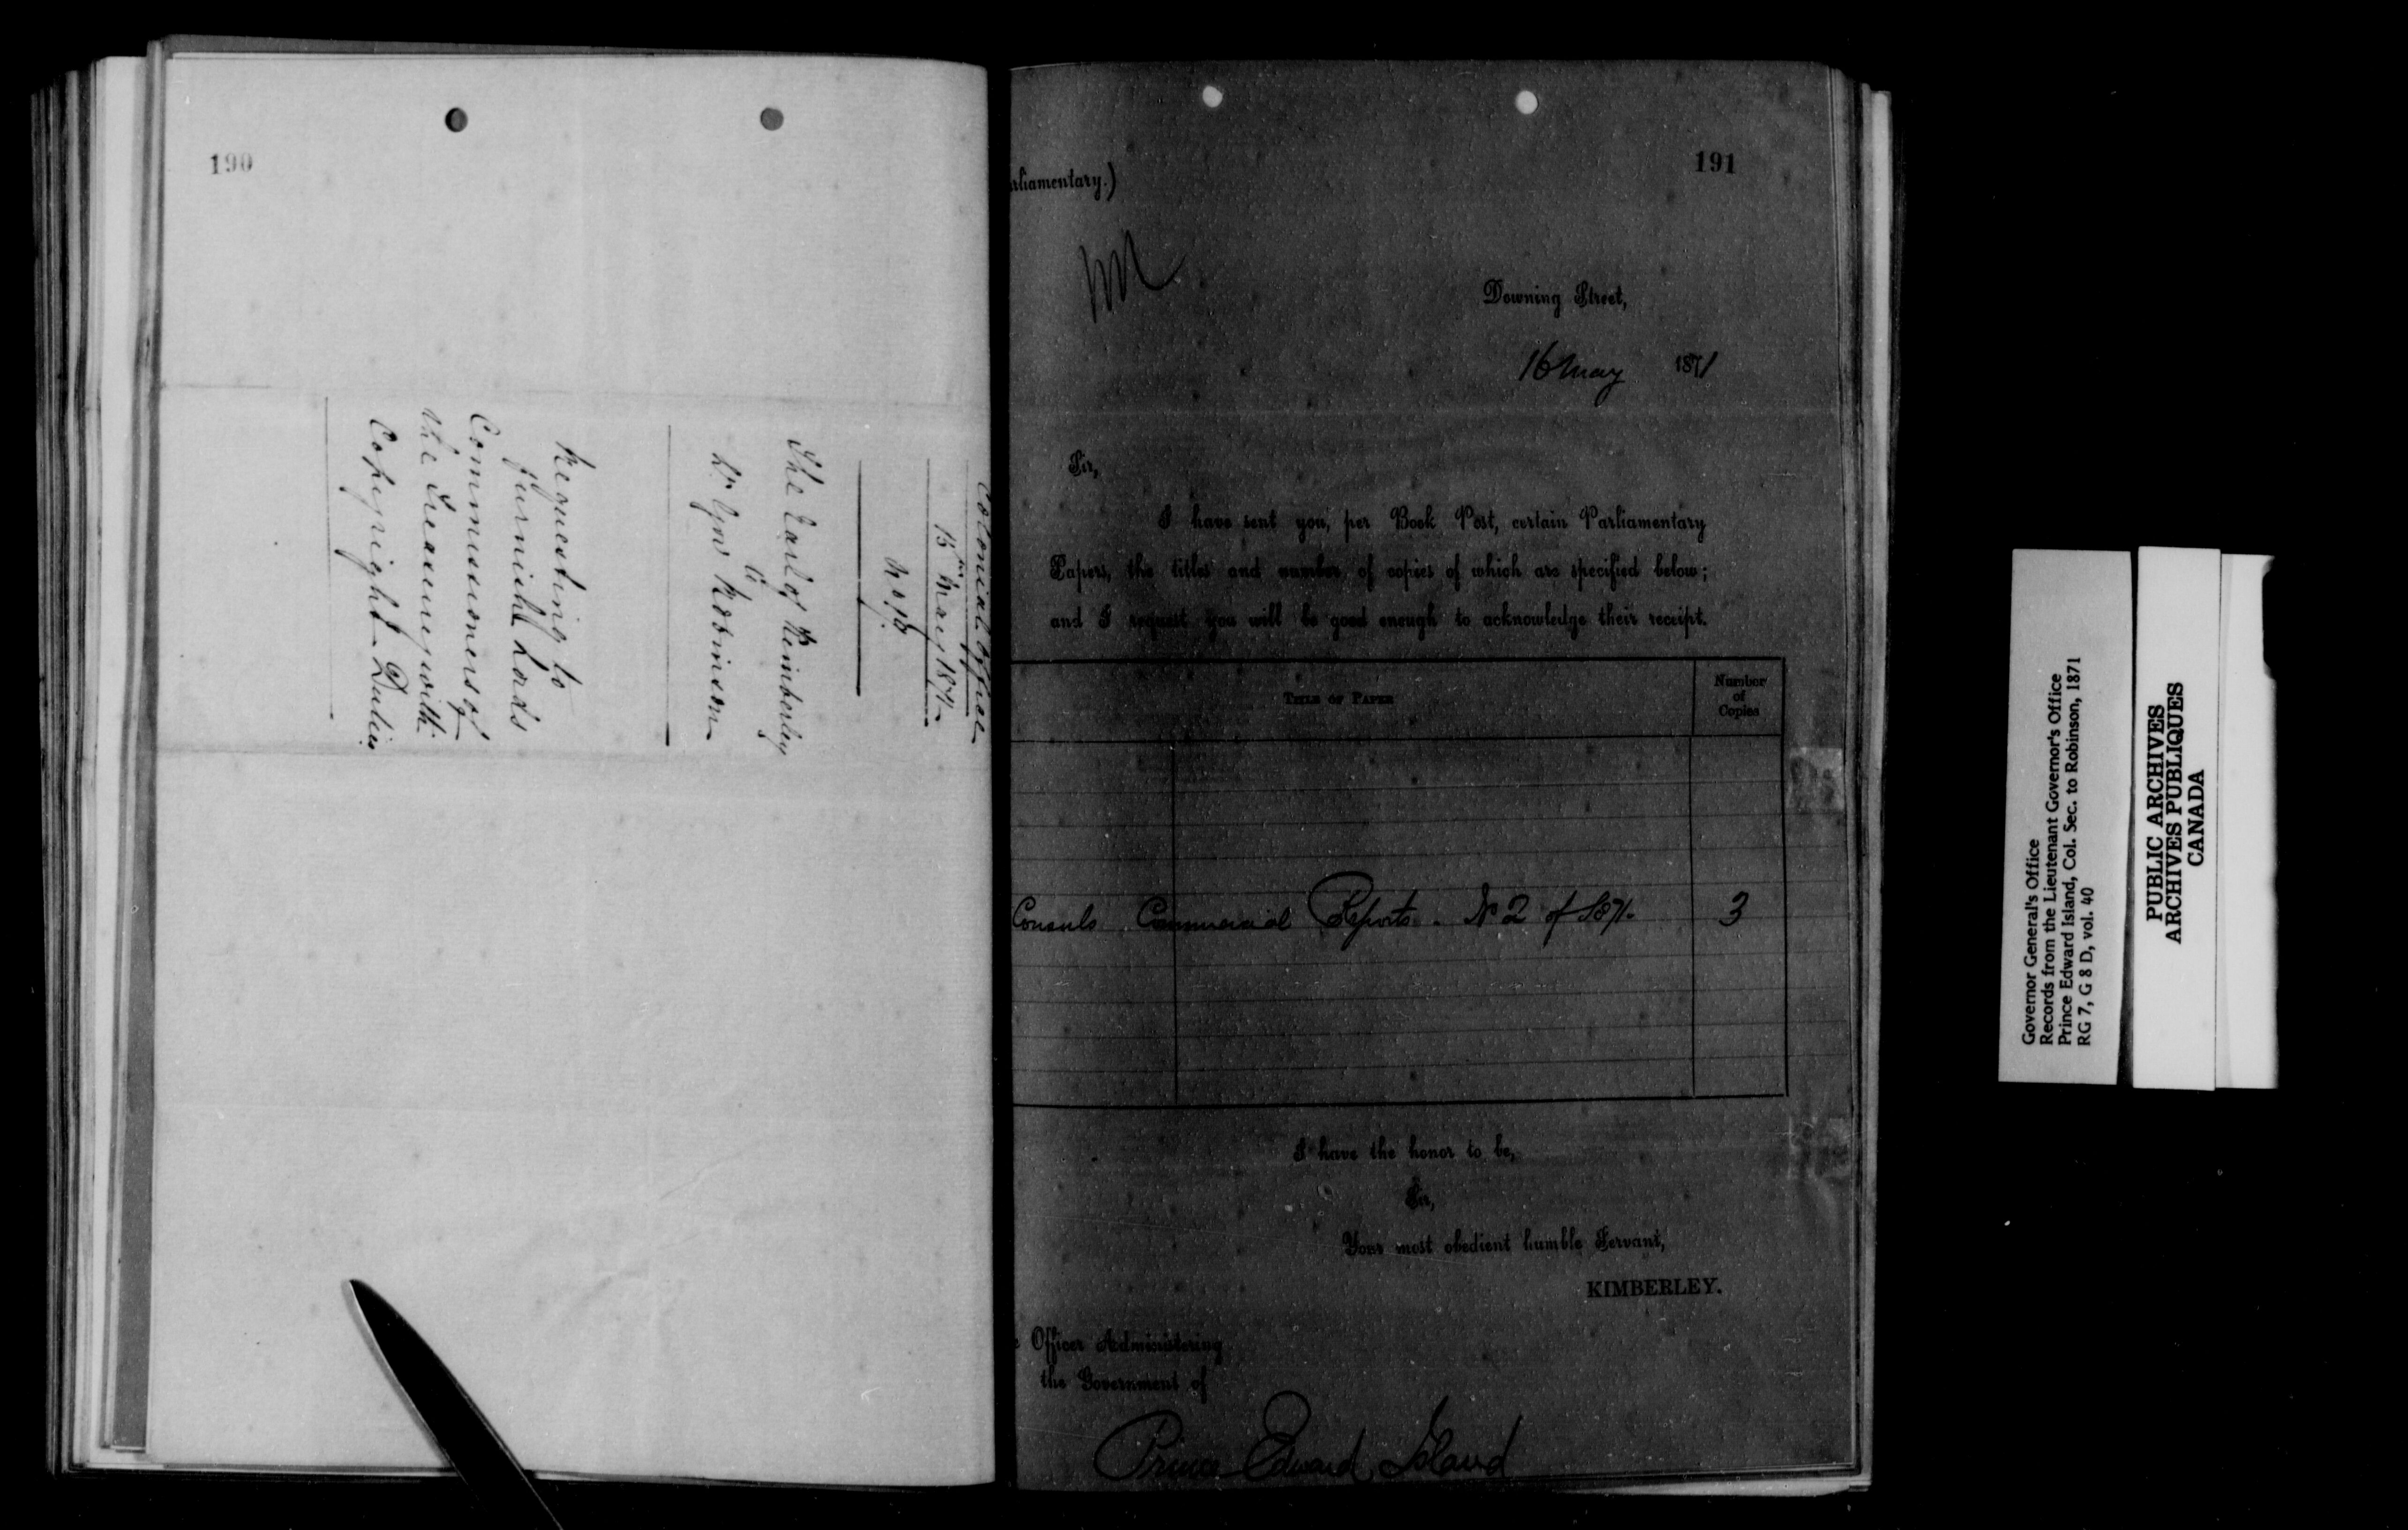 190
Colonial Office
15th May 1871
No 18.
The Earl of Kimberley
to
Lt. Gov Robinson
Requesting to
furnish Lords
Commissioners of
the Treasury with
Copyright Duties.
191
arliamentary.)
Downing Street,
16 May 1871
Sir,
I have sent you, per Book Post, certain Parliamentary
Papers, the titles and number of copies of which are specified below;
and I request you will be good enough to acknowledge their receipt.
TITLE OF PAPER
Number
of
Copies
Consuls Commercial Reports. No 2 of 1871. 3
I have the honor to be,
Sir,
Your most obedient humble Servant,
KIMBERLEY.
e Officer Administering
the Government of
Prince Edward Island
Governor General's Office
Records from the Lieutenant Governor's Office
Prince Edward Island, Col. Sec. to Robinson, 1871
RG 7, G 8 D, vol. 40
PUBLIC ARCHIVES
ARCHIVES PUBLIQUES
CANADA